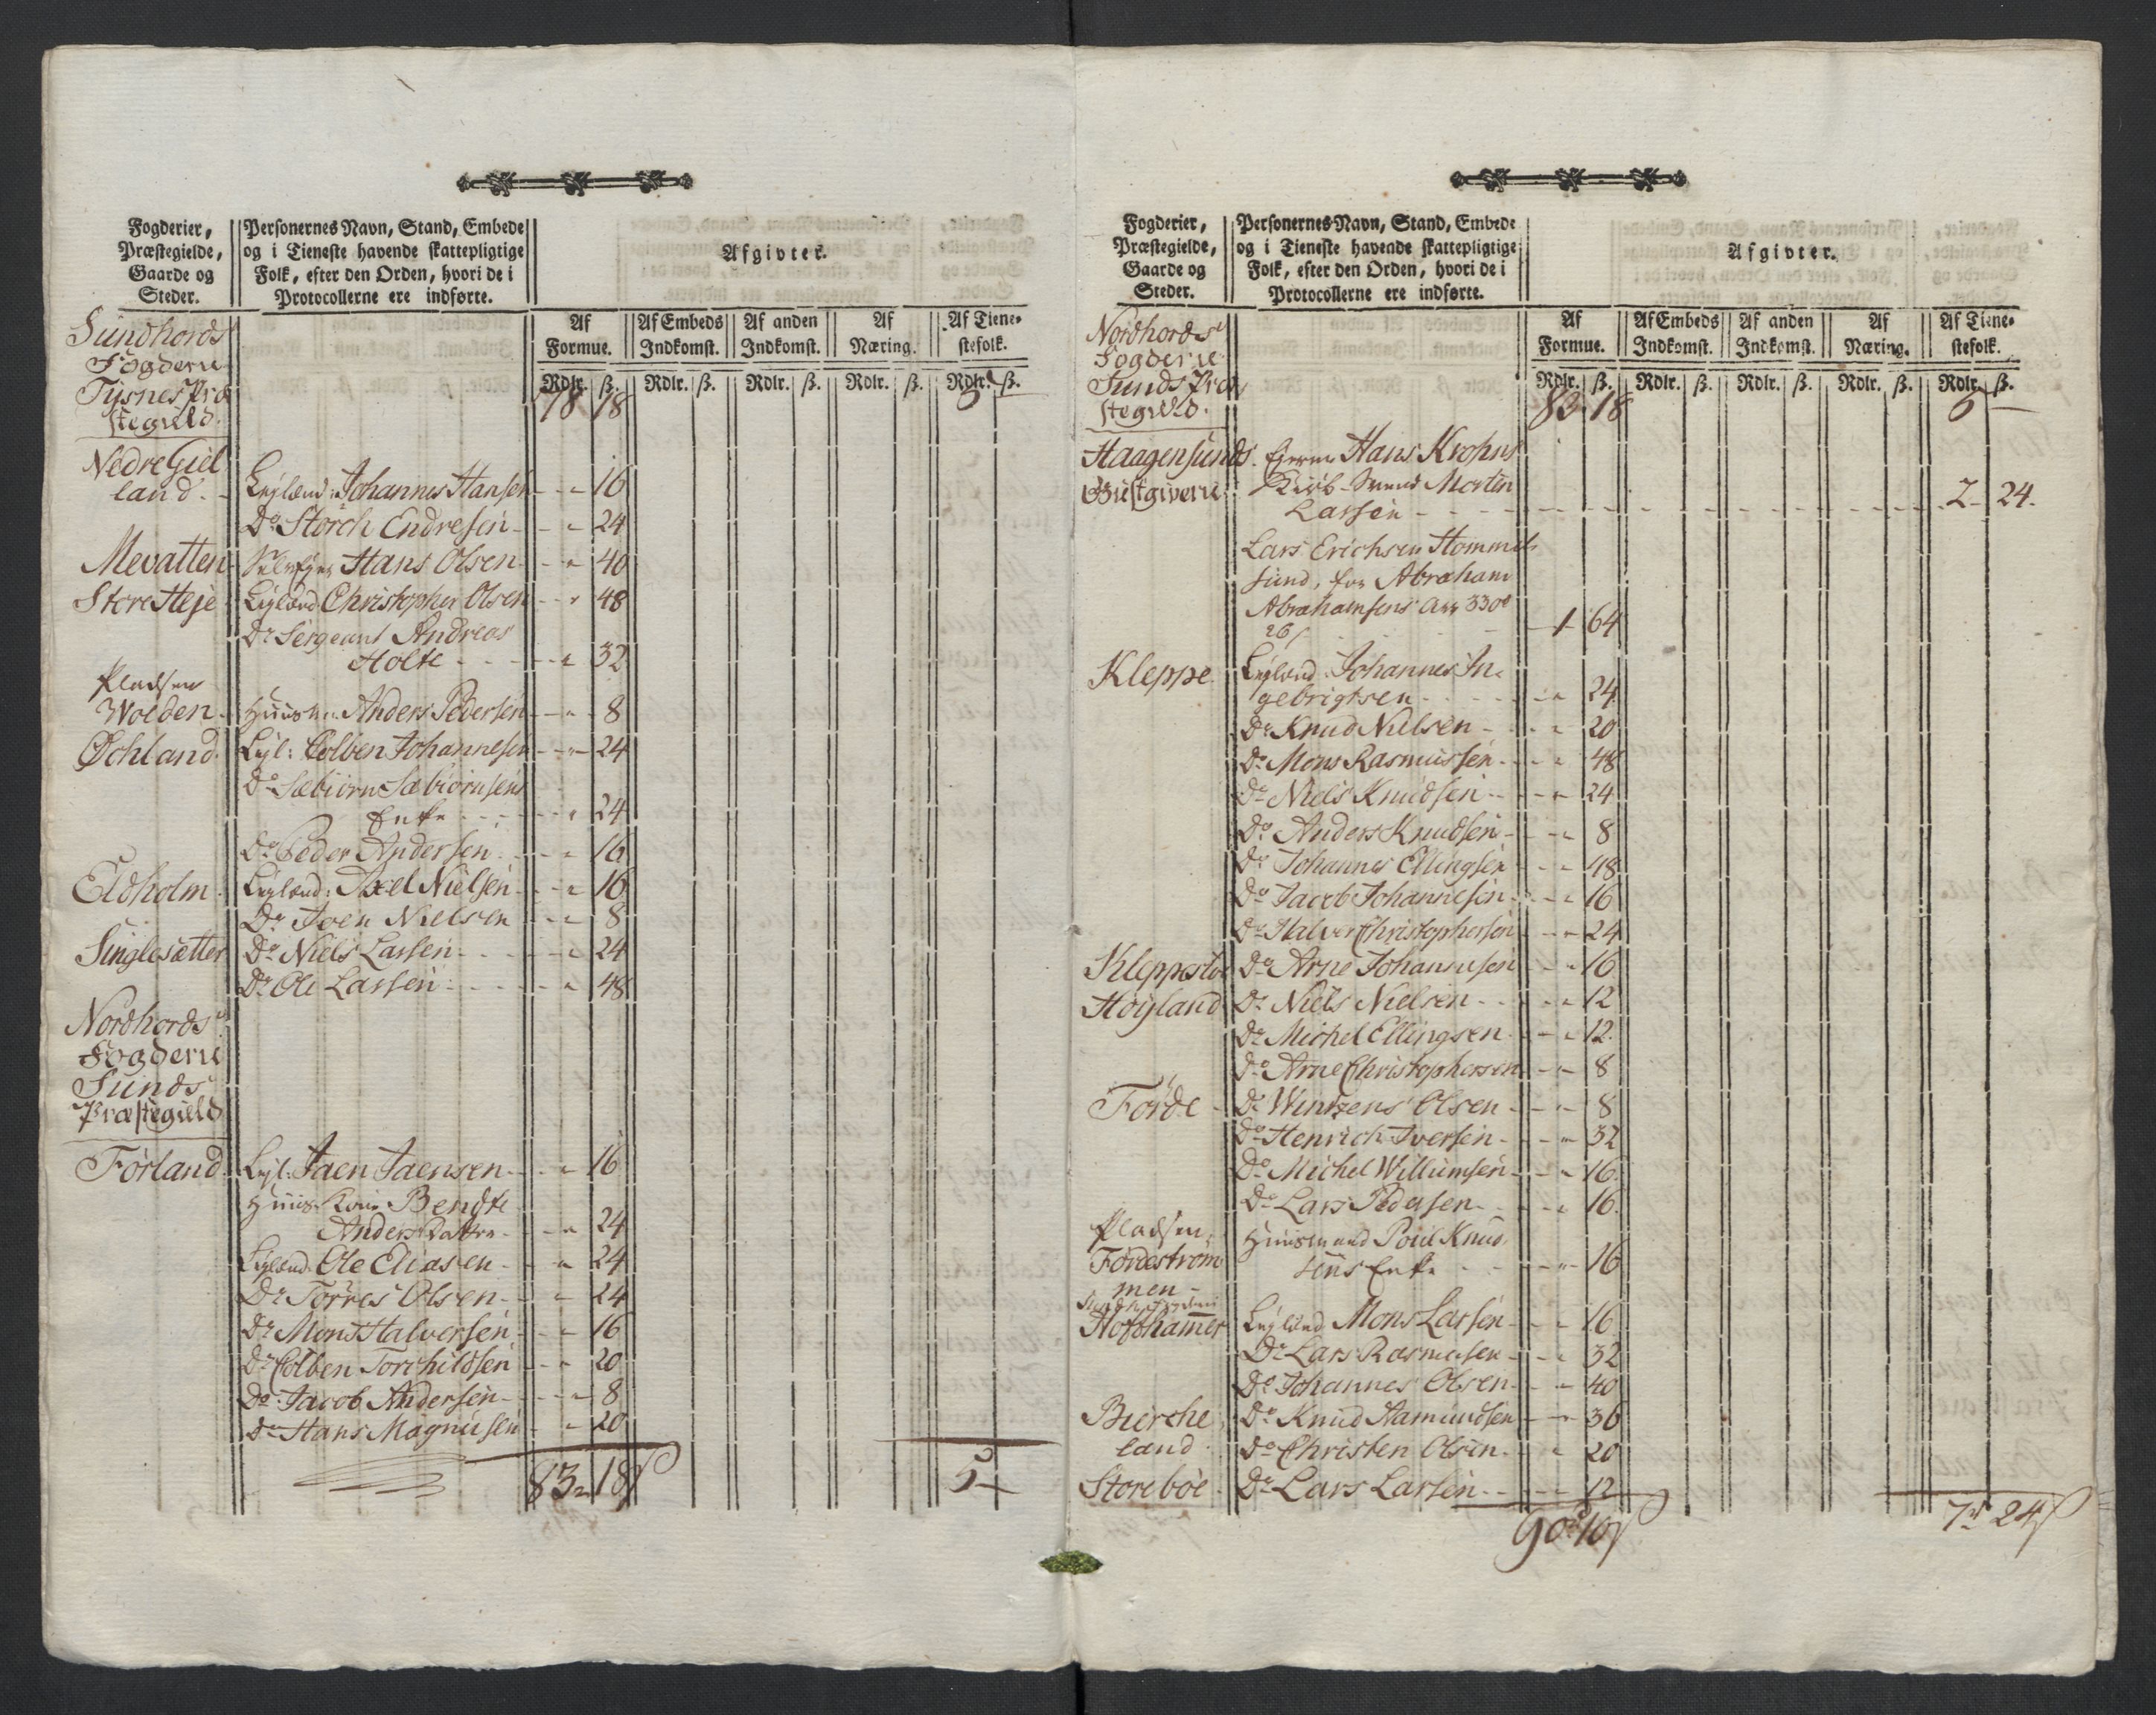 Fogderier, Præstegielde, Gaarde og Steder.
Personernes Navn, Stand, Embede og i Tieneste havende skattepligtige Folk, efter den Orden, hvori de i Protocollerne ere indførte.
Afgivter.
Af Formue. Af Embeds Indkomst. Af anden Indkomst. Af Næring. Af Tienestefolk.
Rdlr. ß. Rdlr. ß. Rdlr. ß. Rdlr. ß. Rdlr. ß.
Sundhords
Fogderie
Tysnes Præ
stegield. 78 18 5 -
Nedre Giel
land - Leylænd: Johannes Hansen - - 16
Do Storch Endresen - - 24
Mevatten Selvejer Hans Olsen - - 40
Store Heje Leylænd Christopher Olsen - - 48
Do Sergeant Andreas
Holte - - - 32
Pladsen
Wolden - Huusm: Anders Pedersen - - 8
Øchland Leyl: Colben Johannesen - - 24
Do Sæbiørn Sæbiørnsens
Enke - - - 24
Do Peder Andersen - - 16
Eldholm Leylænd: Axel Nielsen - - 16
Do Joen Nielsen - - 8
Singlesætter Do Niels Larsen - - 24
Do Ole Larsen - - 48
Nordhords
Fogderie
Sunds
Præstegield
Førland Leyl: Jaen Jaensen - - 16
Huus Kone Bendte
Anders Datter - - 24
Leylænd Ole Eliasen - - 24
Do Torres Olsen - - 24
Do Mons Halversen - - 16
Do Colben Torchildsen - - 20
Do Jacob Andersen - - 8
Do Hans Magnusen - - 20
83 - 18 ß 5 -
Fogderier, Præstegielde, Gaarde og Steder.
Personernes Navn, Stand, Embede og i Tieneste havende skattepligtige Folk, efter den Orden, hvori de i Protocollerne ere indførte.
Afgivter.
Af Formue. Af Embeds Indkomst. Af anden Indkomst. Af Næring. Af Tienestefolk.
Rdlr. ß. Rdlr. ß. Rdlr. ß. Rdlr. ß. Rdlr. ß.
Nordhords
Fogderie
Sunds Præ
stegield. 83 18 5 -
Haagensunds Ejeren Hans Krohns
Giestgiverie Kiøb-Svend Morten
Larsen - - - 2 - 24.
Lars Erichsen Hommel
sund, for Abraham
Abrahamsens Arv 330
26 ß - 1 - 64
Kleppe Leylænd: Johannes In
gebrigtsen - - 24
Do Knud Nielsen - - 20
Do Mons Rasmussen - - 48
Do Niels Knudsen - - 24
Do Anders Knudsen - - 8
Do Johannes Ellingsen - - 48
Do Jacob Johannesen - - 16
Do Halver Christophersen - - 24
Kleppestøe Do Arne Johannesen - - 16
Høyland Do Niels Nielsen - - 12
Do Michel Ellingsen - - 12.
Do Arne Christophersen - - 8
Førde - Do Wintzens Olsen - - 8
Do Henrich Iversen - - 32
Do Michel Willumsen - - 16
Do Lars Pedersen - - 16.
Pladsen
Førdestrøm
men - Huusmand Poul Knud
sens Enke - - 16
Hofshamer Leylænd Mons Larsen - - 16
Do Lars Rasmusen - - 32
Do Johannes Olsen - - 40
Bierche
land Do Knud Aamundsen - - 36
Do Christen Olsen - - 20
Storebøe Do Lars Larsen - - 12
90 - 10 ß 7 - 24 ß